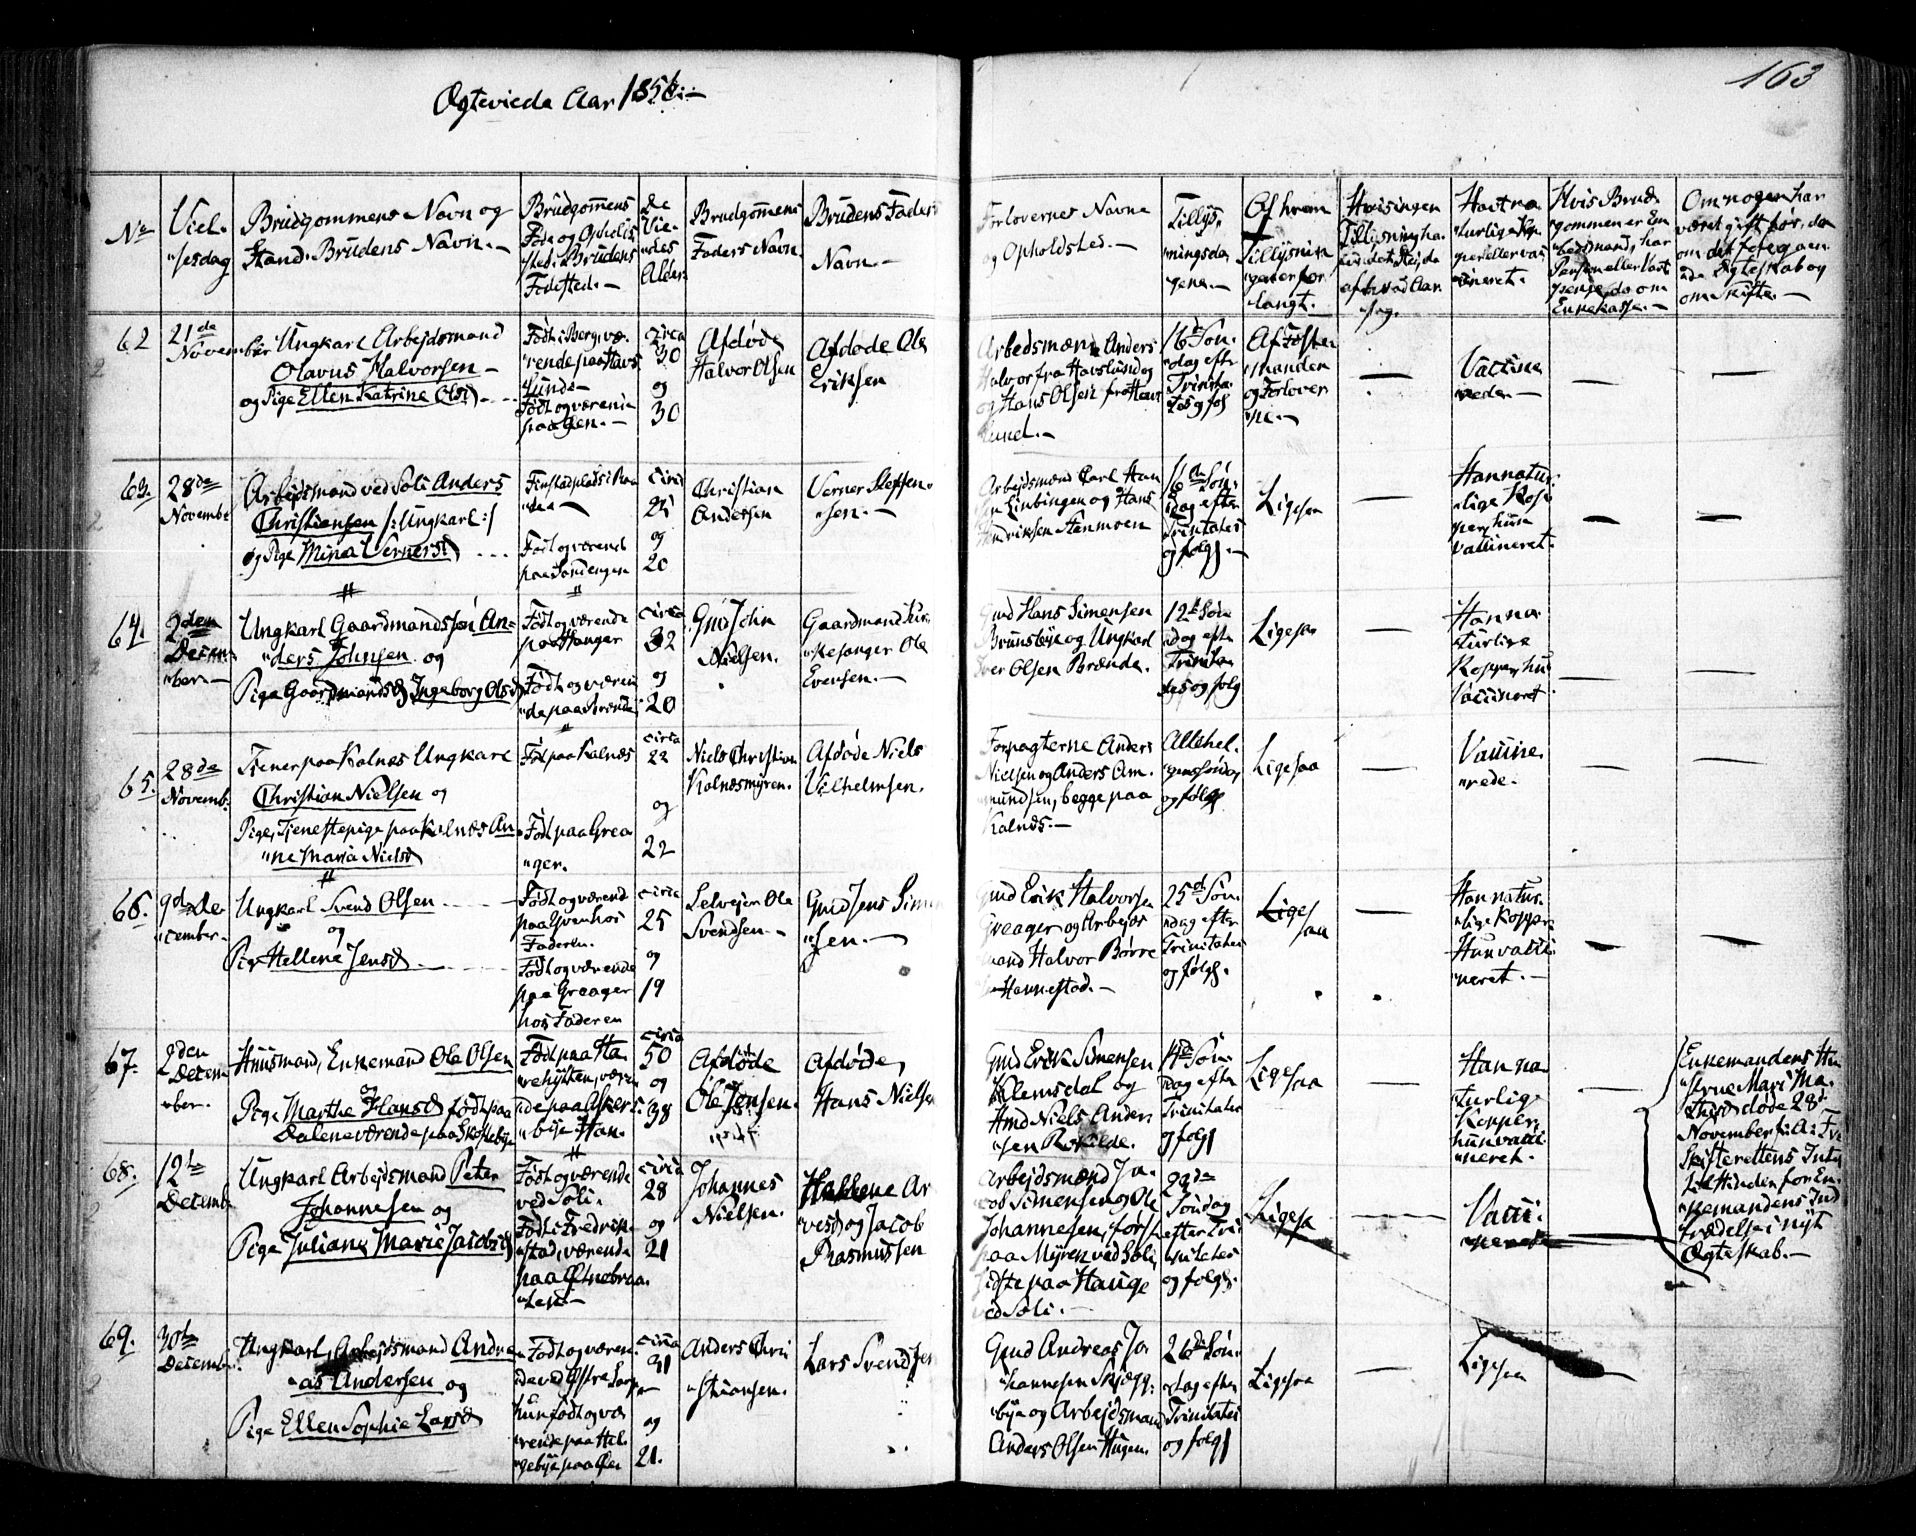 Ægteviede Aar 1856.-
163
No
Viel-
"sesdag
Brudgommens Navn og
Stand. Brudens Navn.-
Brudgommens
Føde og Opholds
sted. Brudens
Fødested.-
De
Vie-
"des
Alder
Brudgommens
Faders Navn.
Brudens Faders
Navn.-
Forlovernes Navne
og Opholdsted.-
Tillys,
"ningsda,
gene.-
Af hvem
Tillysnin
gen er for
langt.
Hvis ingen
Tillysning ha
af hvad Aar
sag.
Havt na
turlige Kop
per eller vac
cineret.
Hvis Brud-
gommen er En
Pension eller
Enkekasse.-
Om nogen har
været gift før, da
om det foregaaen
de Ægteskab og
om Skifte.-
62
21de
November
Ungkarl Arbejdsmand
Olavus Halvorsen -
og Pige Ellen Katrine Olsd. -
Født i Berg, væ-
rende paa Havs
lunde-
Født og værende
paa Øen.-
circa
30
og
30
Afdøde
Halvor Olsen
Afdøde Ole
Eriksen
Arbedsmænd Anders
Halvor fra Havslund og
og Hans Olsen fra Havs
lund.-
16de Søn-
"dag efter
Trinita-
tes og føl
Af Forster
manden
og Forlover
ne.-
Vaccine
rede.-
63.
28de
Novembe
Arbejdsmand ved Soli Anders
Christiansen /: Ungkarl :/
og Pige Mina Vernersd
Finstadplads i Raa
de -
Født og værend
paa Sandengen
circa
25
og
20
Christian
Andersen
Verner Steffen-
"sen.-
Arbejdsmænd Carl Han
Hendriksen Stenmoen
16de Søn-
dag efter
Trinitates
og følg.-
Ligesaa
Han natur-
lige Kop-
per, hun
vaccineret.
64.
2den
Decem
ber.-
Ungkarl Gaardmandssøn An-
"ders Johnsen og
Pige Gaardmandsd Ingeborg Olsd
Født og værende
paa Hanger
Født og væren
"de paa Brende
circa
32
og
20
Gmd John
Nielsen.
Gaardmand
Ole
Evensen.-
Gmd Hans Simensen
Brunsbye og Ungkarl
Iver Olsen Brænde.
12te Søn
dag efte
Trinita
tes og følg
Ligesaa
Hanna-
turlige
Kopper, hu
Vaccineret.
65.
28de
Novemb.
Tjener paa Kalnæs Ungkarl
Christian Nielsen og
Pige, Tjenestepige paa Kalnæs An-
"ne Maria Nielsd
Fød paa Kalnæs
Født paa Grea
"ger.
circa
22
og
22
Niels Christian
Kalnæsmyren.
Afdøde Niels
Vilhelmsen.
Forpagterne Anders
Nielsen og Anders Am-
mundsen, begge paa
Kalnæs.-
Allehel-
gens Søndag
og følg
Ligesaa
Vaccine-
"rede.
66.
9de De-
"cember-
Ungkarl Svend Olsen
og
Pige Hellene Jensd
Født og værend
paa Gvem hos
Faderen.
Født og værende
paa Greager
hos Faderen
circa
25
og
19
Selvejer Ole
Svendsen.-
Gmd Jens Simen
"sen.-
Gmd Erik Halvorsen
Greager og Arbejds
mand Halvor Børre
Hannestad.-
25de Søn-
"dag efter
Trinitates
og følg.
Lige
saa
Han natur-
lige Kopper
Hun vacci
neret.-
67.
2den
Decem
ber.
Huusmand, Enkemand Ole Olsen
Pige Marthe Hansd født paa
Dalene værende paa Skofteby
Født paa Ha-
rehytten, være
de paa Askers-
bye Han.
circa
50
og
38
Afdøde
Ole Jensen.
Afdøde,
Hans Nielsen
Gmd Erik Simensen
Klemsdal og
Hmd Niels Ander-
"sen Rokilde.
14de Søn-
dag efter
Trinitates
og følg
Ligesaa
Han na
turlige
Kopper,
hun vacci-
neret.-
Enkemandens Hu
strue Mari Ma-
døde 28de
November f. A.
Skifterettens
til Hinder for En-
kemandens Ind
trædelse i nyt
Ægteskab.-
68.
12te
Decemb
Ungkarl Arbejdsmand Peter
Johannesen og
Pige Juliane Marie Jacobsd
Født og værende
ved Soli.
Født i Fredrik-
stad, værende
paa Ørnebraa-
circa
28
og
21
Johannes
Nielsen.
Hellene Ar
vesd og Jacob
Rasmussen
Arbejdsmænd Ja-
cob Simensen og Ole
Johannesen, første
paa Myren ved Soli
sidste paa Hauge
ved Soli.-
29de
Søndag
efter Tri
nitates
og følg.
Ligesaa
Vacci-
neret
69.
30te
Decemb.
Ungkarl, Arbejdsmand Andre
"as Andersen og
Pige Ellen Sophie Larsd
Født og væren
de ved Østre
hun født og væ
rende paa Hel-
gebye paa Øen
circa
31
og
21.
Anders Chri
"stiansen.
Lars Svendsen
Gmd Andreas Jo
hannesen Skjegg-
bye og Arbejdsmand
Anders Olsen Haugen.
26de Søn-
dag efter
Trinitates
og følg
Ligesaa
Ligesaa